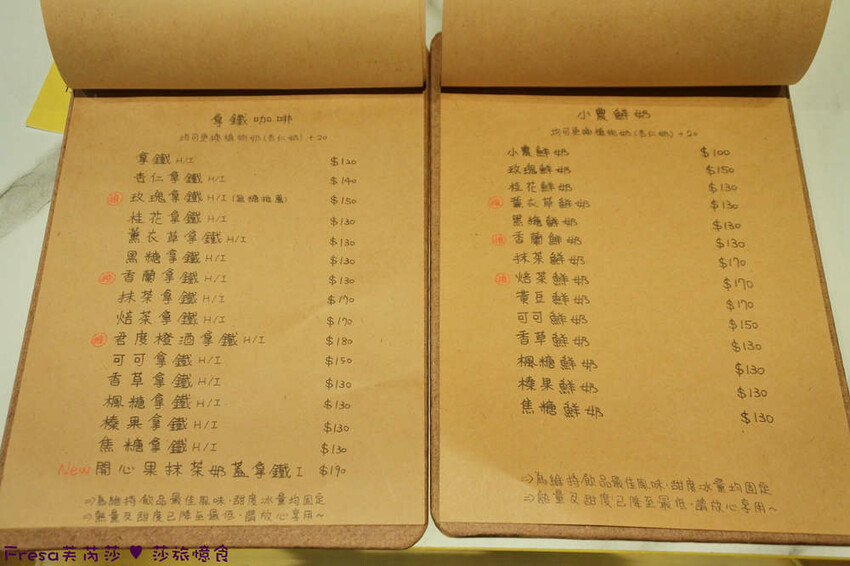 拿鐵咖啡
均可更換植物奶(杏仁奶) +20
拿鐵 H/I $120
杏仁拿鐵 H/I $140
推 玫瑰拿鐵 H/I (無糖推薦) $150
桂花拿鐵 H/I $130
薰衣草拿鐵 H/I $130
黑糖拿鐵 H/I $130
推 香蘭拿鐵 H/I $130
抹茶拿鐵 H/I $170
焙茶拿鐵 H/I $170
推 君度橙酒拿鐵 H/I $180
可可拿鐵 H/I $150
香草拿鐵 H/I $130
楓糖拿鐵 H/I $130
榛果拿鐵 H/I $130
焦糖拿鐵 H/I $130
New 開心果抹茶奶蓋拿鐵 I $190
⇒為維持飲品最佳風味,甜度冰量均固定
⇒熱量及甜度已降至最低,請放心享用~
小農鮮奶
均可更換植物奶(杏仁奶) +20
小農鮮奶 $100
玫瑰鮮奶 $150
桂花鮮奶 $130
推 薰衣草鮮奶 $130
黑糖鮮奶 $130
推 香蘭鮮奶 $130
抹茶鮮奶 $170
推 焙茶鮮奶 $170
黃豆鮮奶 $170
可可鮮奶 $150
香草鮮奶 $130
楓糖鮮奶 $130
榛果鮮奶 $130
焦糖鮮奶 $130
⇒為維持飲品最佳風味,甜度冰量均固定
⇒熱量及甜度已降至最低,請放心享用~
Fresa芙芮莎 ♥ 莎旅憶食